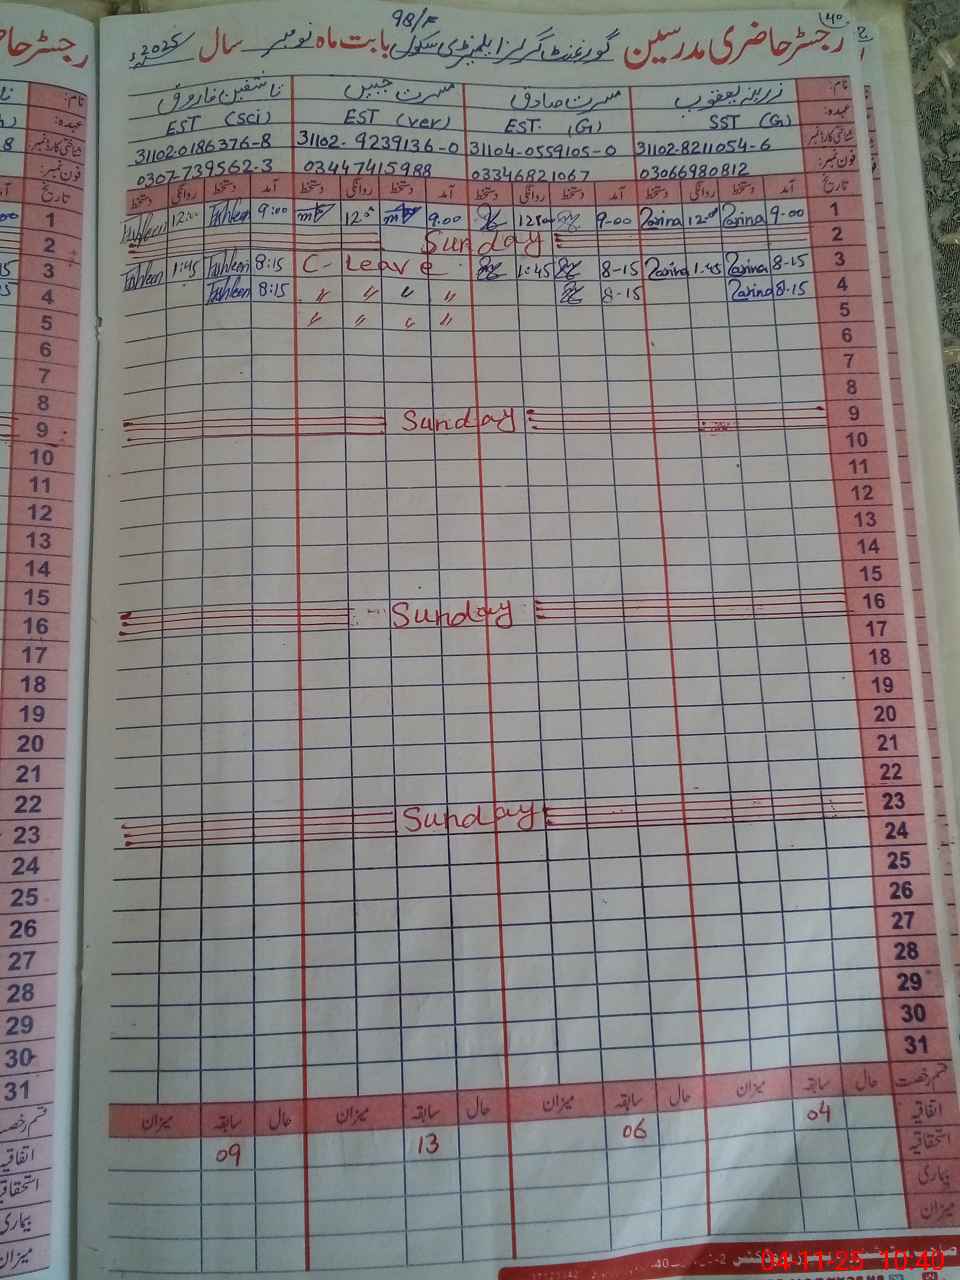 98/F
رجسٹر حاضری مدرسین گورنمنٹ گرلز ایلیمنٹری سکول بابت ماہ نومبر سال 2025ء
نام: زرینہ یعقوب مسرت صادق مسرت جبیں تاشفین فاروق
عہدہ: SST (G) EST. (G) EST (ver) EST (Sci)
شناختی کارڈ نمبر: 31102-8211054-6 31104-0559105-0 31102-9239136-0 31102-0186376-8
فون نمبر: 03066980812 03346821067 03447415988 0307-739562-3
تاریخ آمد دستخط روانگی دستخط آمد دستخط روانگی دستخط آمد دستخط روانگی دستخط آمد دستخط روانگی دستخط
1 9-00 Zarina 12:00 Zarina 9-00 12:00 9.00 12:00 9:00 Tashfeen 12:00 Tashfeen
2 Sunday
3 8-15 Zarina 1.45 Zarina 8-15 1:45 C-Leave 8:15 Tashfeen 1:45 Tashfeen
4 8.15 Zarina 8-15 〃 〃 〃 〃 8:15 Tashfeen
5 〃 〃 〃 〃
6
7
8
9 Sunday
10
11
12
13
14
15
16 Sunday
17
18
19
20
21
22
23 Sunday
24
25
26
27
28
29
30
31
قسم رخصت حال سابقہ میزان حال سابقہ میزان حال سابقہ میزان حال سابقہ میزان
اتفاقیہ 04 06 13 09
استحقاقیہ
بیماری
میزان
04-11-25 10:40